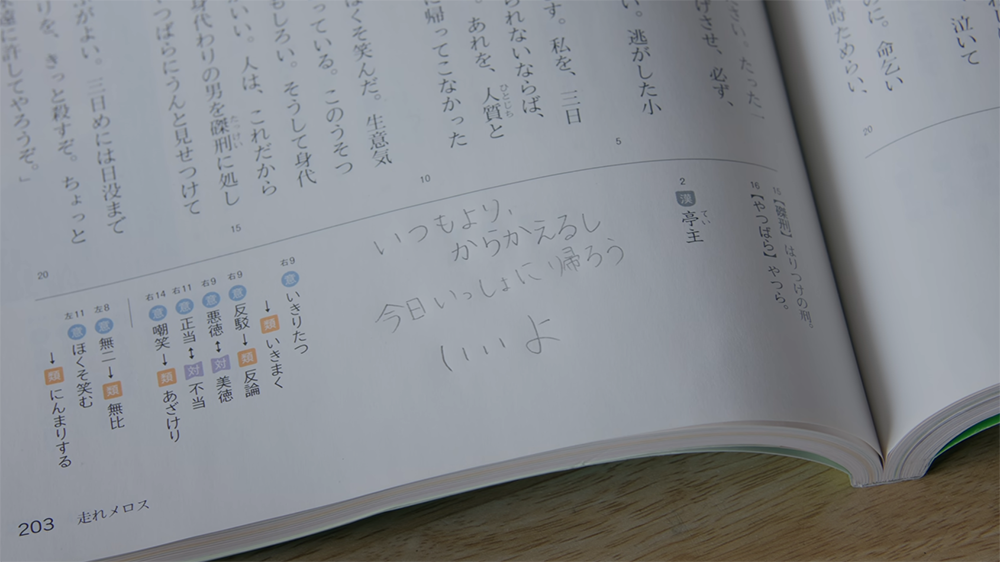 泣いて
に。命乞い
瞬時ためらい、
20
さい。たった一
げさせ、必ず、
い。逃がした小
す。私を、三日
られないならば、
あれを、人質と
ひとじち
帰ってこなかった
ほくそ笑んだ。生意気
っている。このうそつ
もしろい。そうして身代
いい。人は、これだから
身代わりの男を磔刑に処し
たっけい
つばらにうんと見せつけて
がよい。三日めには日没まで
りを、きっと殺すぞ。ちょっと
遠に許してやろうぞ。」
5
10
15
20
15【磔刑】はりつけの刑。
16【やつばら】やつら。
2 漢 亭主
てい
いつもより、
からかえるし
今日いっしょに帰ろう
いいよ
右9 意 いきりたつ
→ 類 いきまく
右9 意 反駁→類 反論
右9 意 悪徳↔対 美徳
右11 意 正当↔対 不当
右14 意 嘲笑→類 あざけり
左8 意 無二→類 無比
左11 意 ほくそ笑む
→ 類 にんまりする
203 走れメロス